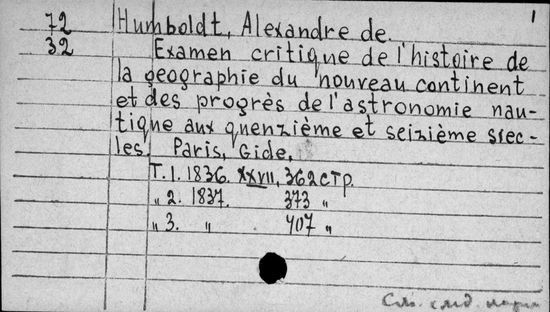 1
72 Humboldt, Alexandre de.
32 Examen critique de l'histoire de
la geographie du nouveau continent
et des progrès de l'astronomie nau-
tique aux quenzième et seizième siec-
les. Paris, Gide,
T. 1. 1836. XXVII, 362 стр.
„ 2. 1837. 373 „
„ 3. „ 407 „
См. след.